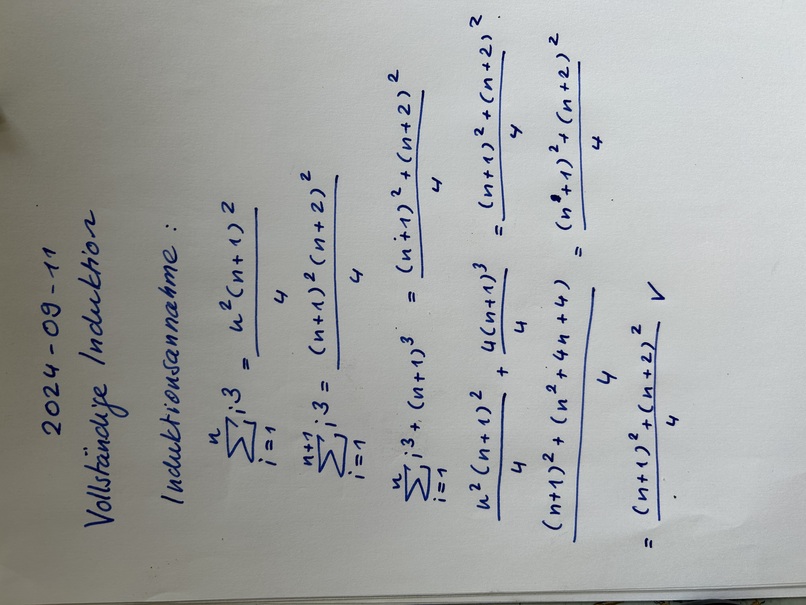 2024-09-11
Vollständige Induktion
Induktionsannahme:
n∑i=1 i³ = n²(n+1)²/4
n+1∑i=1 i³ = (n+1)²(n+2)²/4
n∑i=1 i³ + (n+1)³ = (n+1)²+(n+2)²/4
n²(n+1)²/4 + 4(n+1)³/4 = (n+1)²+(n+2)²/4
(n+1)²+(n²+4n+4)/4 = (n+1)²+(n+2)²/4
= (n+1)²+(n+2)²/4 ✓